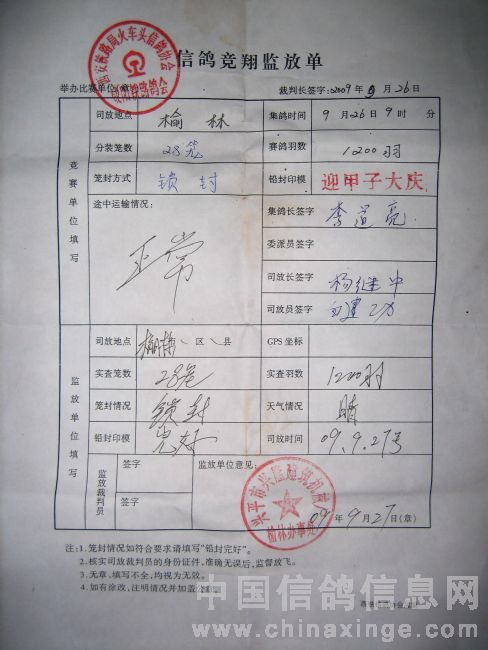 西安铁路局火车头信鸽协会
信鸽竞翔监放单
举办比赛单位(章)
裁判长签字:2009年9月26日
竞赛单位填写
司放地点 榆林 集鸽时间 9月26日9时 分
分装笼数 28笼 赛鸽羽数 1200羽
笼封方式 锁封 铅封印模 迎甲子大庆
途中运输情况: 正常
集鸽长签字 李道亮
委派员签字
司放长签字 杨继中
司放员签字
监放单位填写
司放地点 榆林 区、县 GPS坐标
实查笼数 28笼 实查羽数 1200羽
笼封情况 锁封 天气情况 晴
铅封印模 完好 司放时间 09.9.27号
监放裁判员
签字
签字
监放单位意见:
榆林办事处
09年9月27日(章)
注:1.笼封情况如符合要求请填写"铅封完好"。
2.核实司放裁判员的身份证件,准确无误后,监督放飞。
3.无章,填写不全,均视为无效。
4.如有涂改,注明情况并加盖公章。
中国信鸽信息网
www.chinaxinge.com